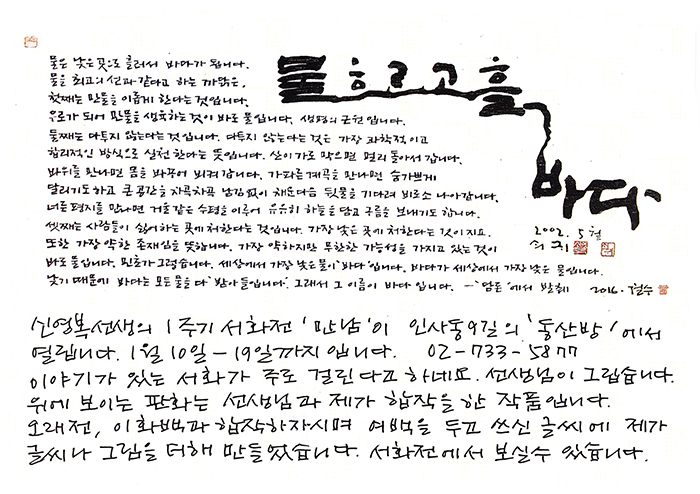 물은 낮은 곳으로 흘러서 바다가 됩니다.
물을 최고의 선과 같다고 하는 까닭은,
첫째는 만물을 이롭게 한다는 것입니다.
우로가 되어 만물을 생육하는 것이 바로 물입니다. 생명의 근원입니다.
둘째는 다투지 않는다는 것입니다. 다투지 않는다는 것은 가장 과학적이고
합리적인 방식으로 실천한다는 뜻입니다. 산이 가로막으면 멀리 돌아서 갑니다.
바위를 만나면 몸을 나누어 비켜갑니다. 가파른 계곡을 만나면 숨가쁘게
달리기도 하고 큰 공간을 차곡차곡 남김없이 채운 다음 뒷물을 기다려 비로소 나아갑니다.
너른 평지를 만나면 거울같은 수평을 이루어 유유히 하늘을 담고 구름을 보내기도 합니다.
셋째는 사람들이 싫어하는 곳에 처한다는 것입니다. 가장 낮은 곳에 처한다는 것이지요.
또한 가장 약한 존재임을 뜻합니다. 가장 약하지만 무한한 가능성을 가지고 있는 것이
바로 물입니다. 민초가 그렇습니다. 세상에서 가장 낮은 물이 '바다'입니다. 바다가 세상에서 가장 낮은 물입니다.
낮기 때문에 바다는 모든 물을 다 '받아들입니다'. 그래서 그 이름이 바다입니다. -'담론'에서 발췌 2016. 철수
물 흐르고 흘
바다
2002. 5월
쇠귀
신영복선생의 1주기 서화전 '만남'이 인사동9길의 '동산방'에서
열립니다. 1월 10일-19일까지입니다. 02-733-5877
이야기가 있는 서화가 주로 걸린다고 하네요. 선생님이 그립습니다.
위에 보이는 판화는 선생님과 제가 합작을 한 작품입니다.
오래전, 이화백과 합작하자시며 여백을 두고 쓰신 글씨에 제가
글씨나 그림을 더해 만들었습니다. 서화전에서 보실수 있습니다.